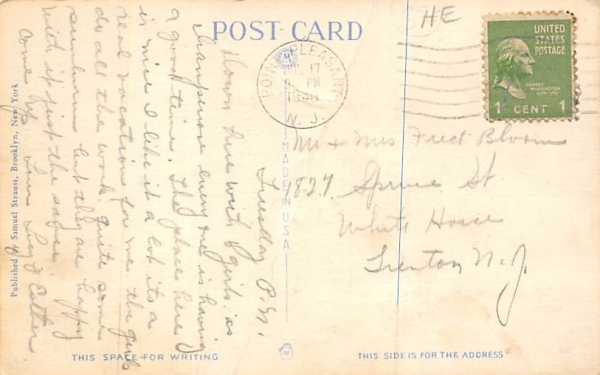 POST CARD
HE
UNITED
STATES
POSTAGE
GEORGE
WASHINGTON
1 CENT 1
POINT PLEASANT
17
PM
1940
N. J.
Tuesday P.M.
Down here with 6 girls as
chaperone every one is having
a good time. The place here
is nice I like it a lot its a
real vacation for me the girls
do all the work. Quite some
sunburns but they are happy
with it just the same.
Love Esther
Mr & Mrs Fred Bloom
1827 Spruce St
White Horse
Trenton N.J.
MADE IN USA
Published by Samuel Strauss, Brooklyn, New York
THIS SPACE FOR WRITING
THIS SIDE IS FOR THE ADDRESS